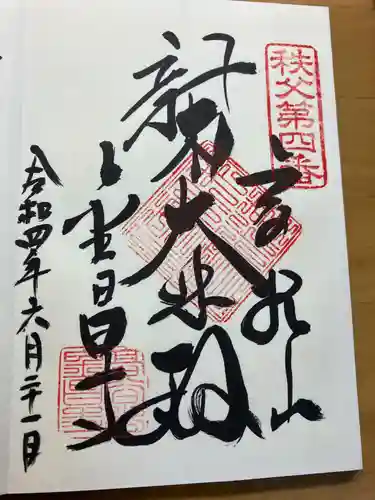 秩父第四番
高谷山
新木大悲殿
金昌寺
令和四年六月二十一日